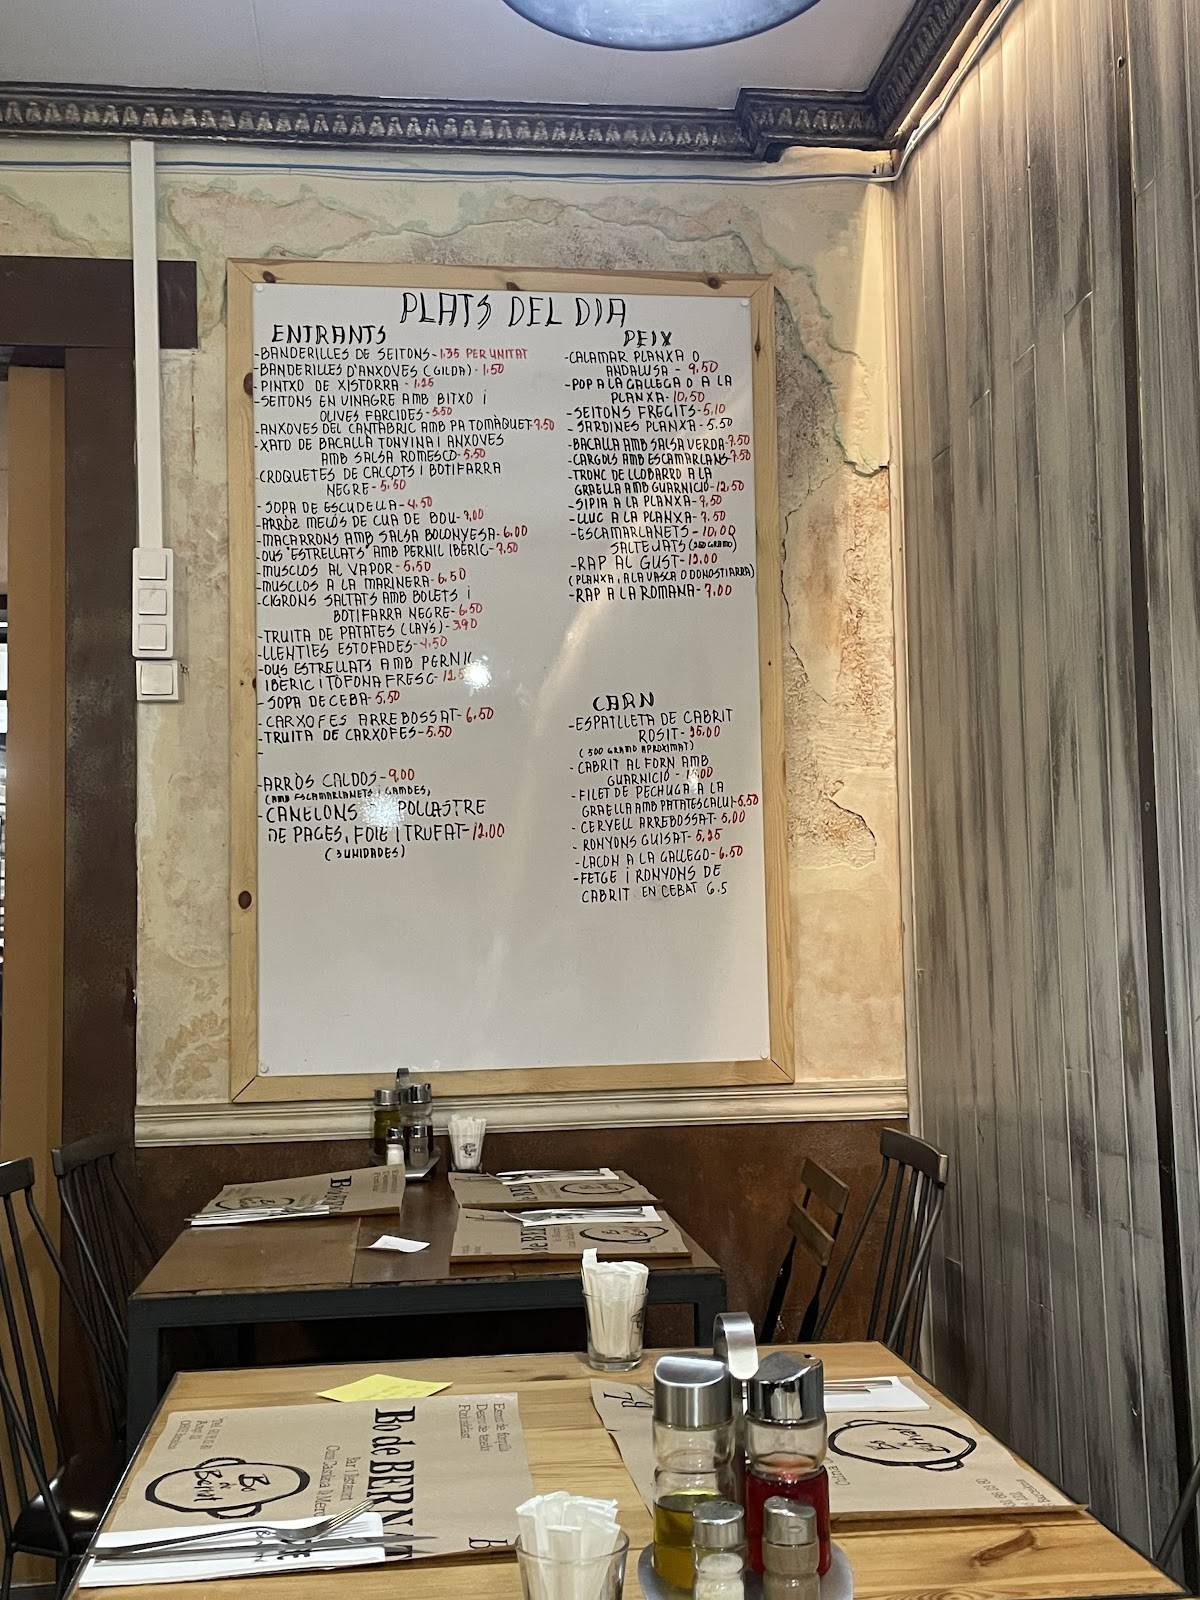 PLATS DEL DIA
ENTRANTS
-BANDERILLES DE SEITONS-1.35 PER UNITAT
-BANDERILLES D'ANXOVES (GILDA)-1.50
-PINTXO DE XISTORRA -1.25
-SEITONS EN VINAGRE AMB BITXO i
OLIVES FARCIDES-5.50
-ANXOVES DEL CANTÀBRIC AMB PA TOMÀQUET-7.50
-XATO DE BACALLÀ TONYINA I ANXOVES
AMB SALSA ROMESCO-5.50
-CROQUETES DE CALÇOTS I BOTIFARRA
NEGRE-5.50
-SOPA DE ESCUDELLA-4.50
-ARRÒZ MELÓS DE CUA DE BOU-7,00
-MACARRONS AMB SALSA BOLONYESA-6.00
-OUS "ESTRELLATS" AMB PERNIL IBÈRIC-7,50
-MUSCLOS AL VAPOR-5,50
-MUSCLOS A LA MARINERA-6,50
-CIGRONS SALTATS AMB BOLETS i
BOTIFARRA NEGRE-6.50
-TRUITA DE PATATES (LAY'S)-3,90
-LLENTIES ESTOFADES-4,50
-OUS ESTRELLATS AMB PERNIL
IBÈRIC I TÒFONA FRESC-
-SOPA DE CEBA-5,50
-CARXOFES ARREBOSSAT-6,50
-TRUITA DE CARXOFES-5.50
-
-ARRÒS CALDÓS-9,00
(AMB ESCAMARLANETS I GAMBES,
-CANELONS POLLASTRE
DE PAGES, FOIE I TRUFAT-12.00
(3 UNIDADES)
PEIX
-CALAMAR PLANXA O
ANDALUSA - 9,50
-POP A LA GALLEGA O A LA
PLANXA-10,50
-SEITONS FREGITS-5,10
-SARDINES PLANXA-5.50
-BACALLÀ AMB SALSA VERDA-7.50
-CARGOLS AMB ESCAMARLANS-7.50
-TRONC DE LLOBARRO A LA
GRAELLA AMB GUARNICIÓ-12,50
-SIPIA A LA PLANXA-9,50
-LLUC A LA PLANXA-7.50
-ESCAMARLANETS-10,00
SALTEJATS
-RAP AL GUST-12.00
(PLANXA, A LA VASCA O DONOSTIARRA)
-RAP A LA ROMANA-7.00
CARN
-ESPATLLETA DE CABRIT
ROSIT-
(500 GRAMO APROXIMAT)
-CABRIT AL FORN AMB
GUARNICIÓ -
-FILET DE PECHUGA A LA
GRAELLA AMB PATATES CALIU-6,50
-CERVELL ARREBOSSAT-5,00
-RONYONS GUISAT-5,25
-LACON A LA GALLEGO-6.50
-FETGE i RONYONS DE
CABRIT EN CEBAT 6.5
Bo de BERNAT
Bar i Restaurant
Cuina Casolana de Mercat
Bo
de
Bernat